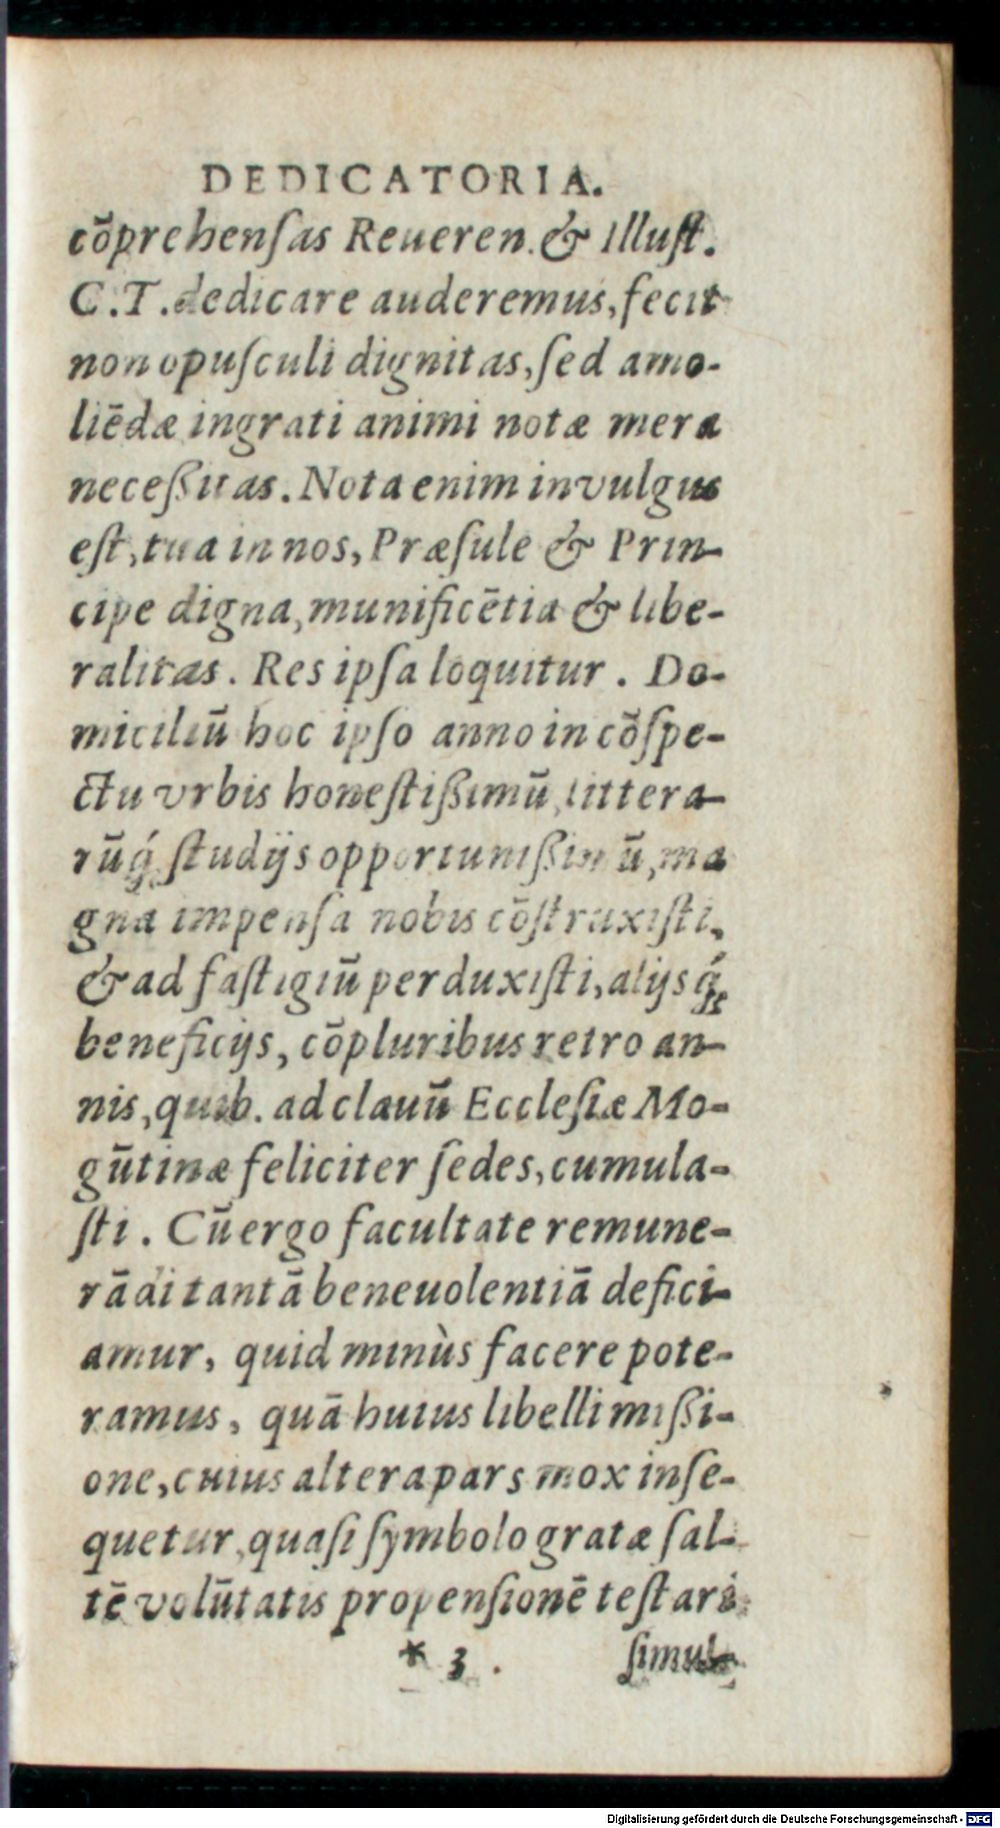 DEDICATORIA.
cõprehensas Reueren. & Illust.
C.T. dedicare auderemus, fecit
non opusculi dignitas, sed amo-
liēdæ ingrati animi notæ mera
necessitas. Nota enim in vulgus
est, tua in nos, Præsule & Prin-
cipe digna, munificētia & libe-
ralitas. Res ipsa loquitur. Do-
miciliū hoc ipso anno in cõspe-
ctu vrbis honestissimū, littera-
rūq́; studijs opportunissimū, ma
gna impensa nobis cõstruxisti,
& ad fastigiū perduxisti, alijsq́;
beneficijs, cõpluribus retro an-
nis, quib. ad clauū Ecclesiæ Mo-
gūtinæ feliciter sedes, cumula-
sti. Cū ergo facultate remune-
rādi tantā beneuolentiā defici-
amur, quid minùs facere pote-
ramus, quā huius libelli missi-
one, cuius altera pars mox inse-
quetur, quasi symbolo gratæ sal-
tē volūtatis propensionē testari
* 3. simul
Digitalisierung gefördert durch die Deutsche Forschungsgemeinschaft - DFG